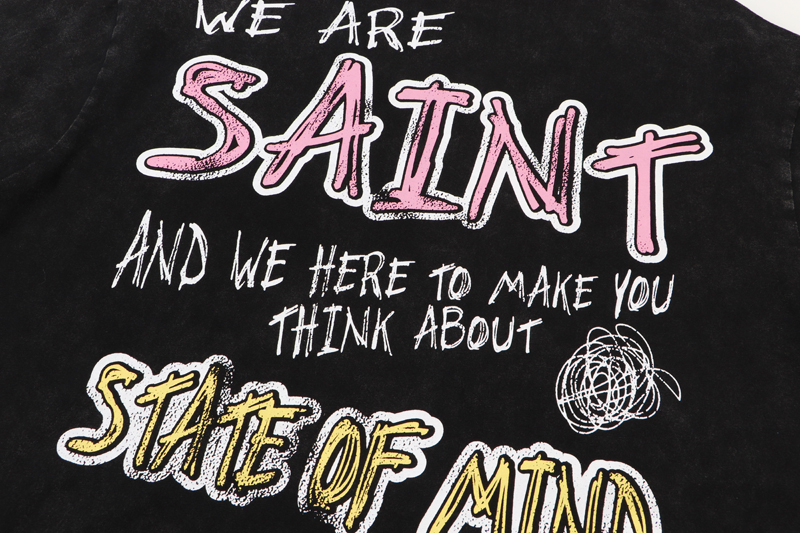 WE ARE
SAINT
AND WE HERE TO MAKE YOU
THINK ABOUT
STATE OF MIND